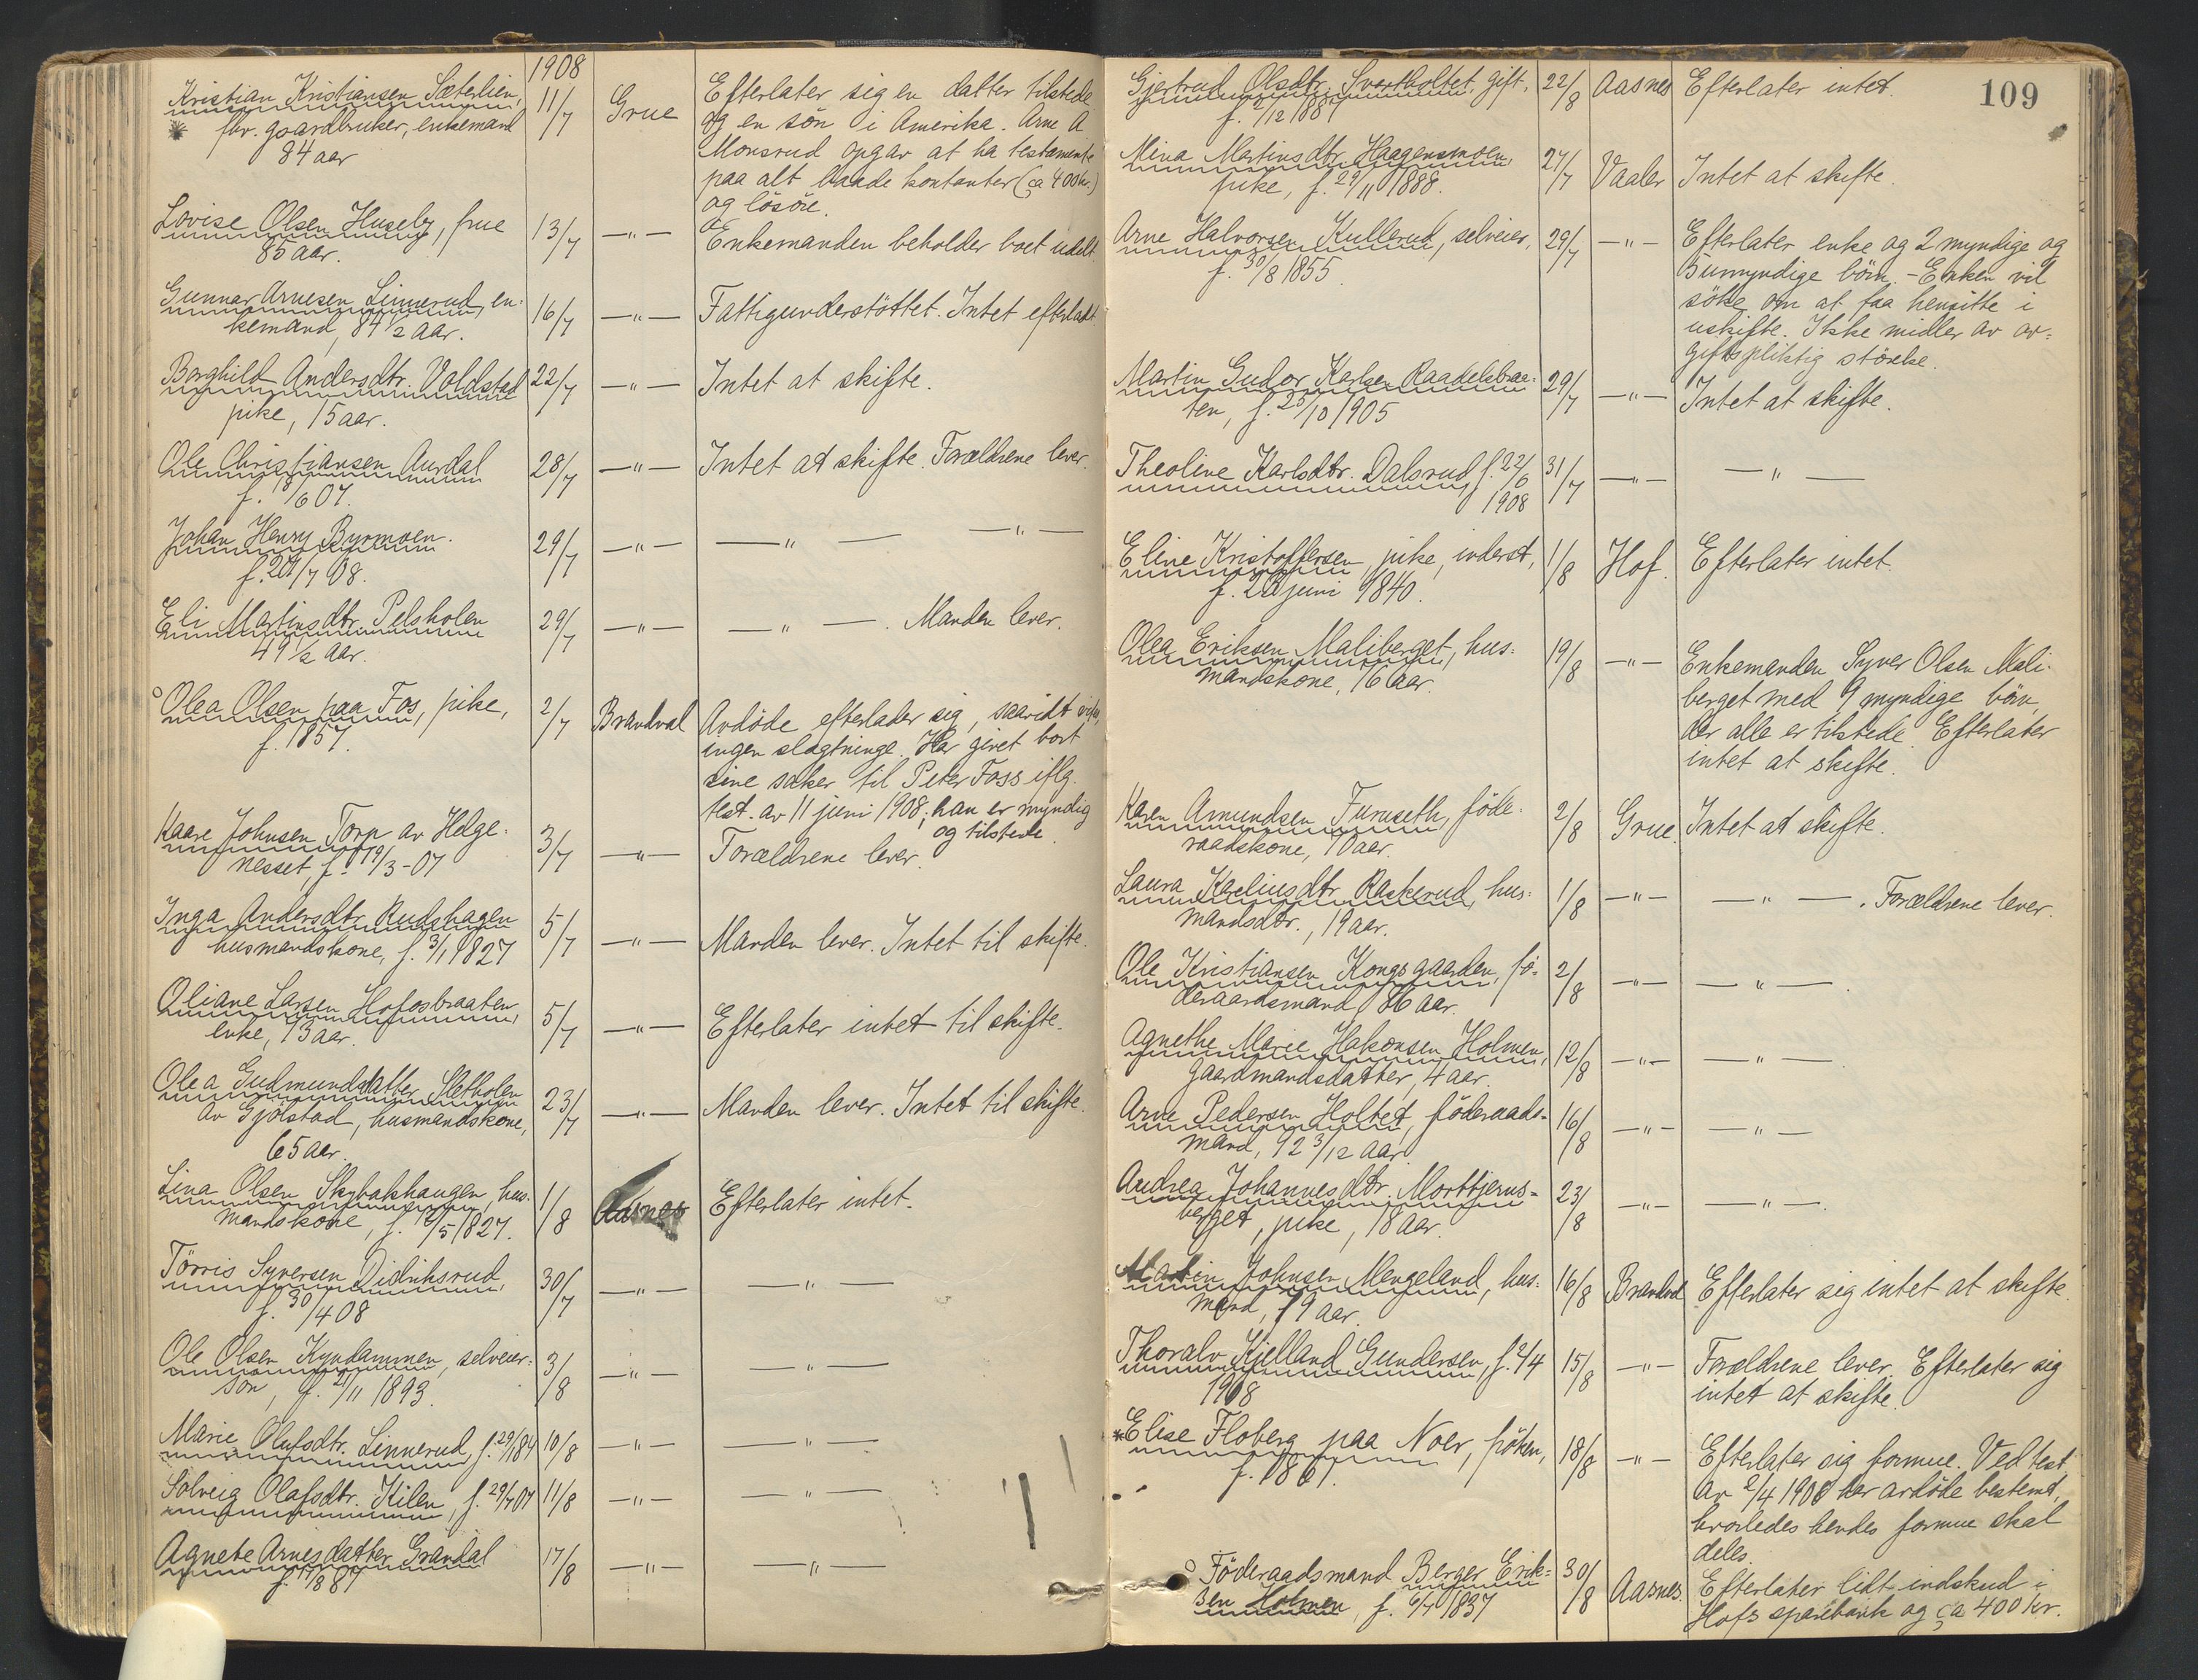 1908
Kristian Kristiansen Sæterlien, 11/7 Grue Efterlater sig en datter tilstede
* fhv. gaardbruker, enkemand og en søn i Amerika. Arne A
84 aar Monsrud opgav at ha testamente
paa alt baade kontanter (ca 400 kr.)
og løsøre.
Lovise Olsen Huseby, frue 13/7 —"— Enkemanden beholder boet udelt
85 aar.
Gunnar Arnesen Linnerud, en- 16/7 —"— Fattigunderstøttet. Intet efterladt
kemand, 84 1/2 aar.
Borghild Andersdtr. Voldstad 22/7 —"— Intet at skifte.
pike, 15 aar.
Ole Christiansen Aurdal 28/7 —"— Intet at skifte. Forældrene lever.
f. 18/6 07.
Johan Henry Byrmoen. 29/7 —"— —"— —"—
f. 20/7 08.
Eli Martinsdtr. Pelsholen 29/7 —"— —"—. Manden lever.
49 1/2 aar.
Olea Olsen paa Fos, pike, 2/7 Brandval Avdøde efterlader sig, saavidt vides,
f. 1857. ingen slægtninge. Har givet bort
sine saker til Peter Foss iflg.
test. av 11 juni 1908; han er myndig
og tilstede.
Kaare Johnsen Torp av Helge- 3/7 —"— Forældrene lever.
nesset, f. 19/3-07
Inga Andersdtr. Rudshagen 5/7 —"— Manden lever. Intet til skifte.
husmandskone, f. 3/1 1827
Oliane Larsen Hofosbraaten, 5/7 —"— Efterlater intet til skifte.
enke, 73 aar.
Olea Gudmundsdatter Sletholen 23/7 —"— Manden lever. Intet til skifte.
av Gjølstad, husmandskone,
65 aar.
Lina Olsen Skybakhaugen, hus- 1/8 Aasnes Efterlater intet.
mandskone, f. 12/5 1827.
Tørris Syversen Didriksrud, 30/7 —"— —"—
f. 30/4 08
Ole Olsen Kyndammen, selveier- 3/8 —"— —"—
søn, f. 21/11 1893.
Marie Olufsdtr. Linnerud, f. 29/1 84 10/8 —"— —"—
Solveig Olafsdtr. Kilen, f. 29/7 07 11/8 —"— —"—
Agnete Arnesdatter Grandal 17/8 —"— —"—
f. 17/8 87
109
Gjertrud Olsdtr. Svartholtet, gift, 22/8 Aasnes Efterlater intet.
f. 2/12 1881
Mina Martinsdtr. Haagensmoen, 27/7 Vaaler Intet at skifte.
pike, f. 29/11 1888.
Arne Halvorsen Kullerud, selveier, 29/7 —"— Efterlater enke og 2 myndige og
f. 30/8 1855. 5 umyndige børn. - Enken vil
søke om at faa hensitte i
uskifte. Ikke midler av av-
giftspliktig størelse.
Martin Gudor Karlsen Raadelsbraa- 29/7 —"— Intet at skifte.
ten, f. 25/10 1905
Theoline Karlsdtr. Dalsrud, f. 22/6 31/7 —"— —"—
1908
Eline Kristoffersen, pike, inderst, 1/8 Hof. Efterlater intet.
f. 20 juni 1840.
Olea Eriksen Maliberget, hus- 19/8 —"— Enkemanden Syver Olsen Mali-
mandskone, 76 aar. berget med 9 myndige børn,
der alle er tilstede. Efterlater
intet at skifte.
Karen Amundsen Furuseth, føde- 2/8 Grue. Intet at skifte.
raadskone, 70 aar.
Laura Karliusdtr. Raskerud, hus- 1/8 —"— —"—. Forældrene lever.
mandsdtr., 19 aar.
Ole Kristiansen Kongsgaarden, fø- 2/8 —"— —"—.
deraadsmand, 86 aar.
Agnethe Marie Hakonsen Holmen, 12/8 —"— —"—
gaardmandsdatter, 4 aar.
Arne Pedersen Holtet, føderaads- 16/8 —"— —"—
mand, 92 3/12 aar
Andrea Johannesdtr. Morttjerns- 23/8 —"— —"—.
berget, pike, 18 aar.
Martin Johnsen Mengeland, hus- 16/8 Brandval Efterlater sig intet at skifte.
mand, 79 aar.
Thoralv Kjelland Gundersen, f. 2/4 15/8 —"— Forældrene lever. Efterlater sig
1908 intet at skifte.
*Elise Floberg paa Noer, frøken, 18/8 —"— Efterlater sig formue. Ved test
f. 1861. av 2/4 1908 har avdøde bestemt,
hvorledes hendes formue skal
deles.
Føderaadsmand Berger Erik- 30/8 Aasnes. Efterlater lidt indskud i
sen Holmen, f. 6/7 1837 Hofs sparebank og ca 400 kr.